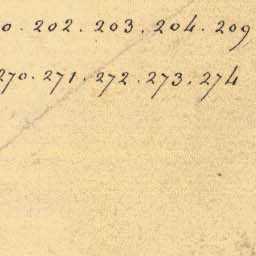 0. 202. 203. 204. 209
270. 271. 272. 273. 274